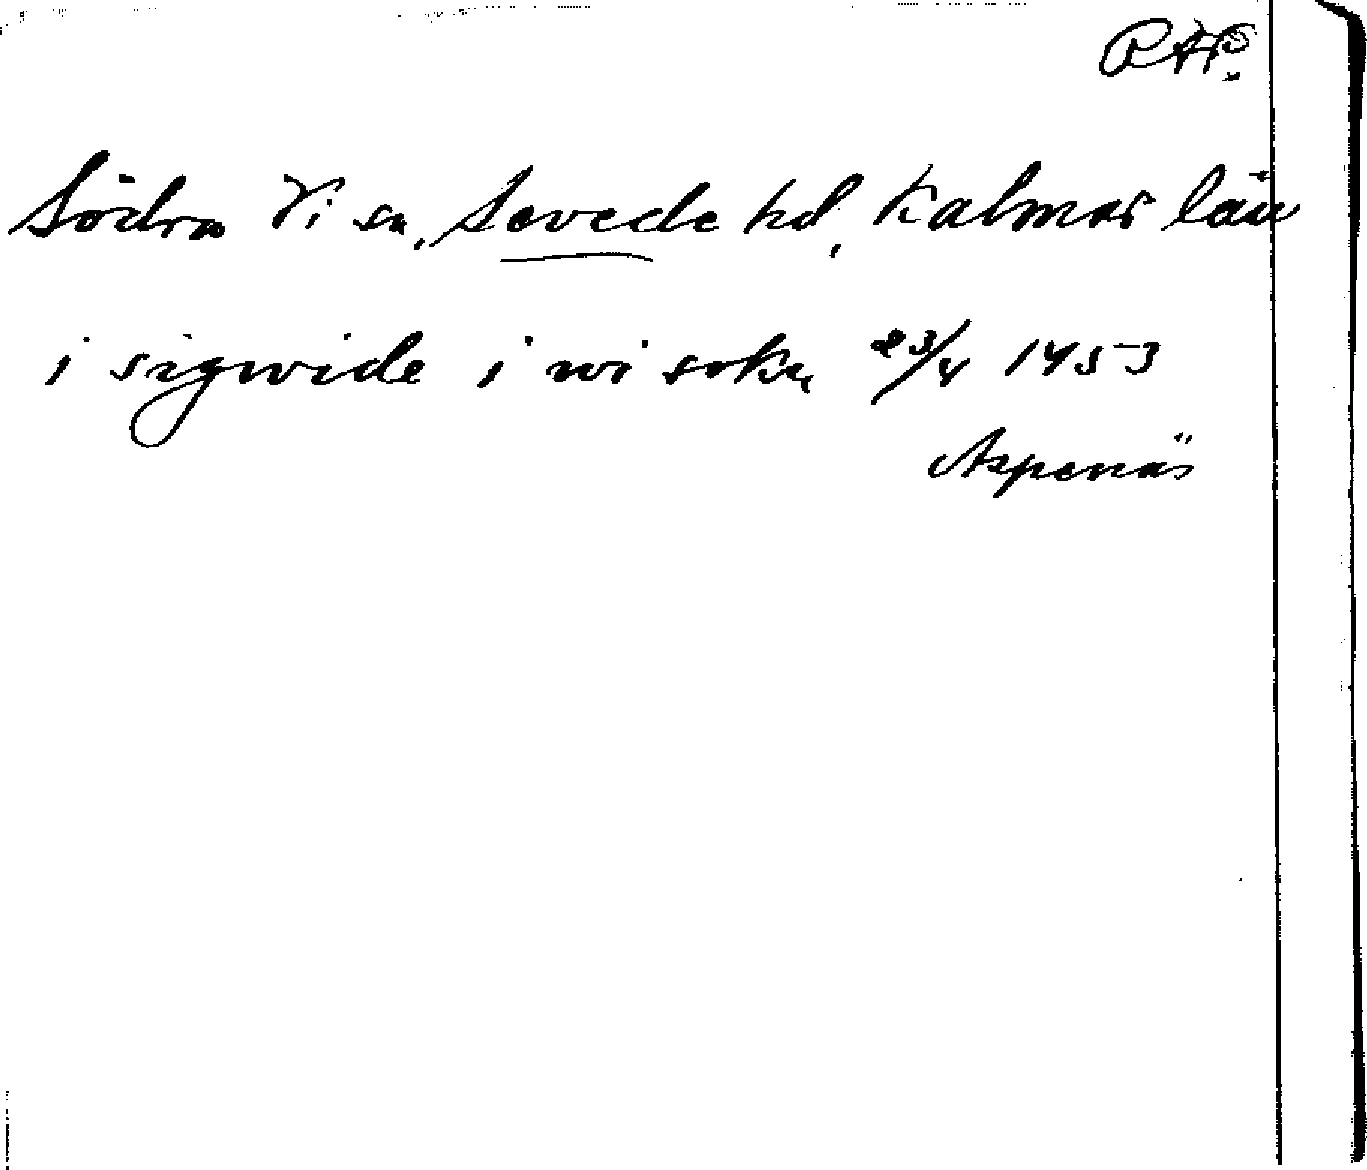 Södra Vi sn, Sevede hd, Kalmar län
i sigwide i wi sokn 23/4 1453
Aspenäs